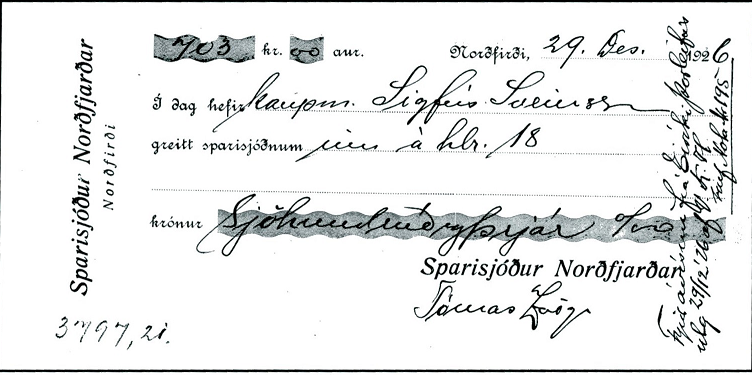 Sparisjóður Norðfjarðar
Norðfirði
703 kr. 00 aur.
Norðfirði, 29. Des. 1926
Í dag hefir kaupm. Sigfús Sveinsson
greitt sparisjóðnum inn á hlr. 18
krónur Sjöhundruðogþrjár 0/00
Sparisjóður Norðfjarðar
Tómas Zoëga
3797,21.